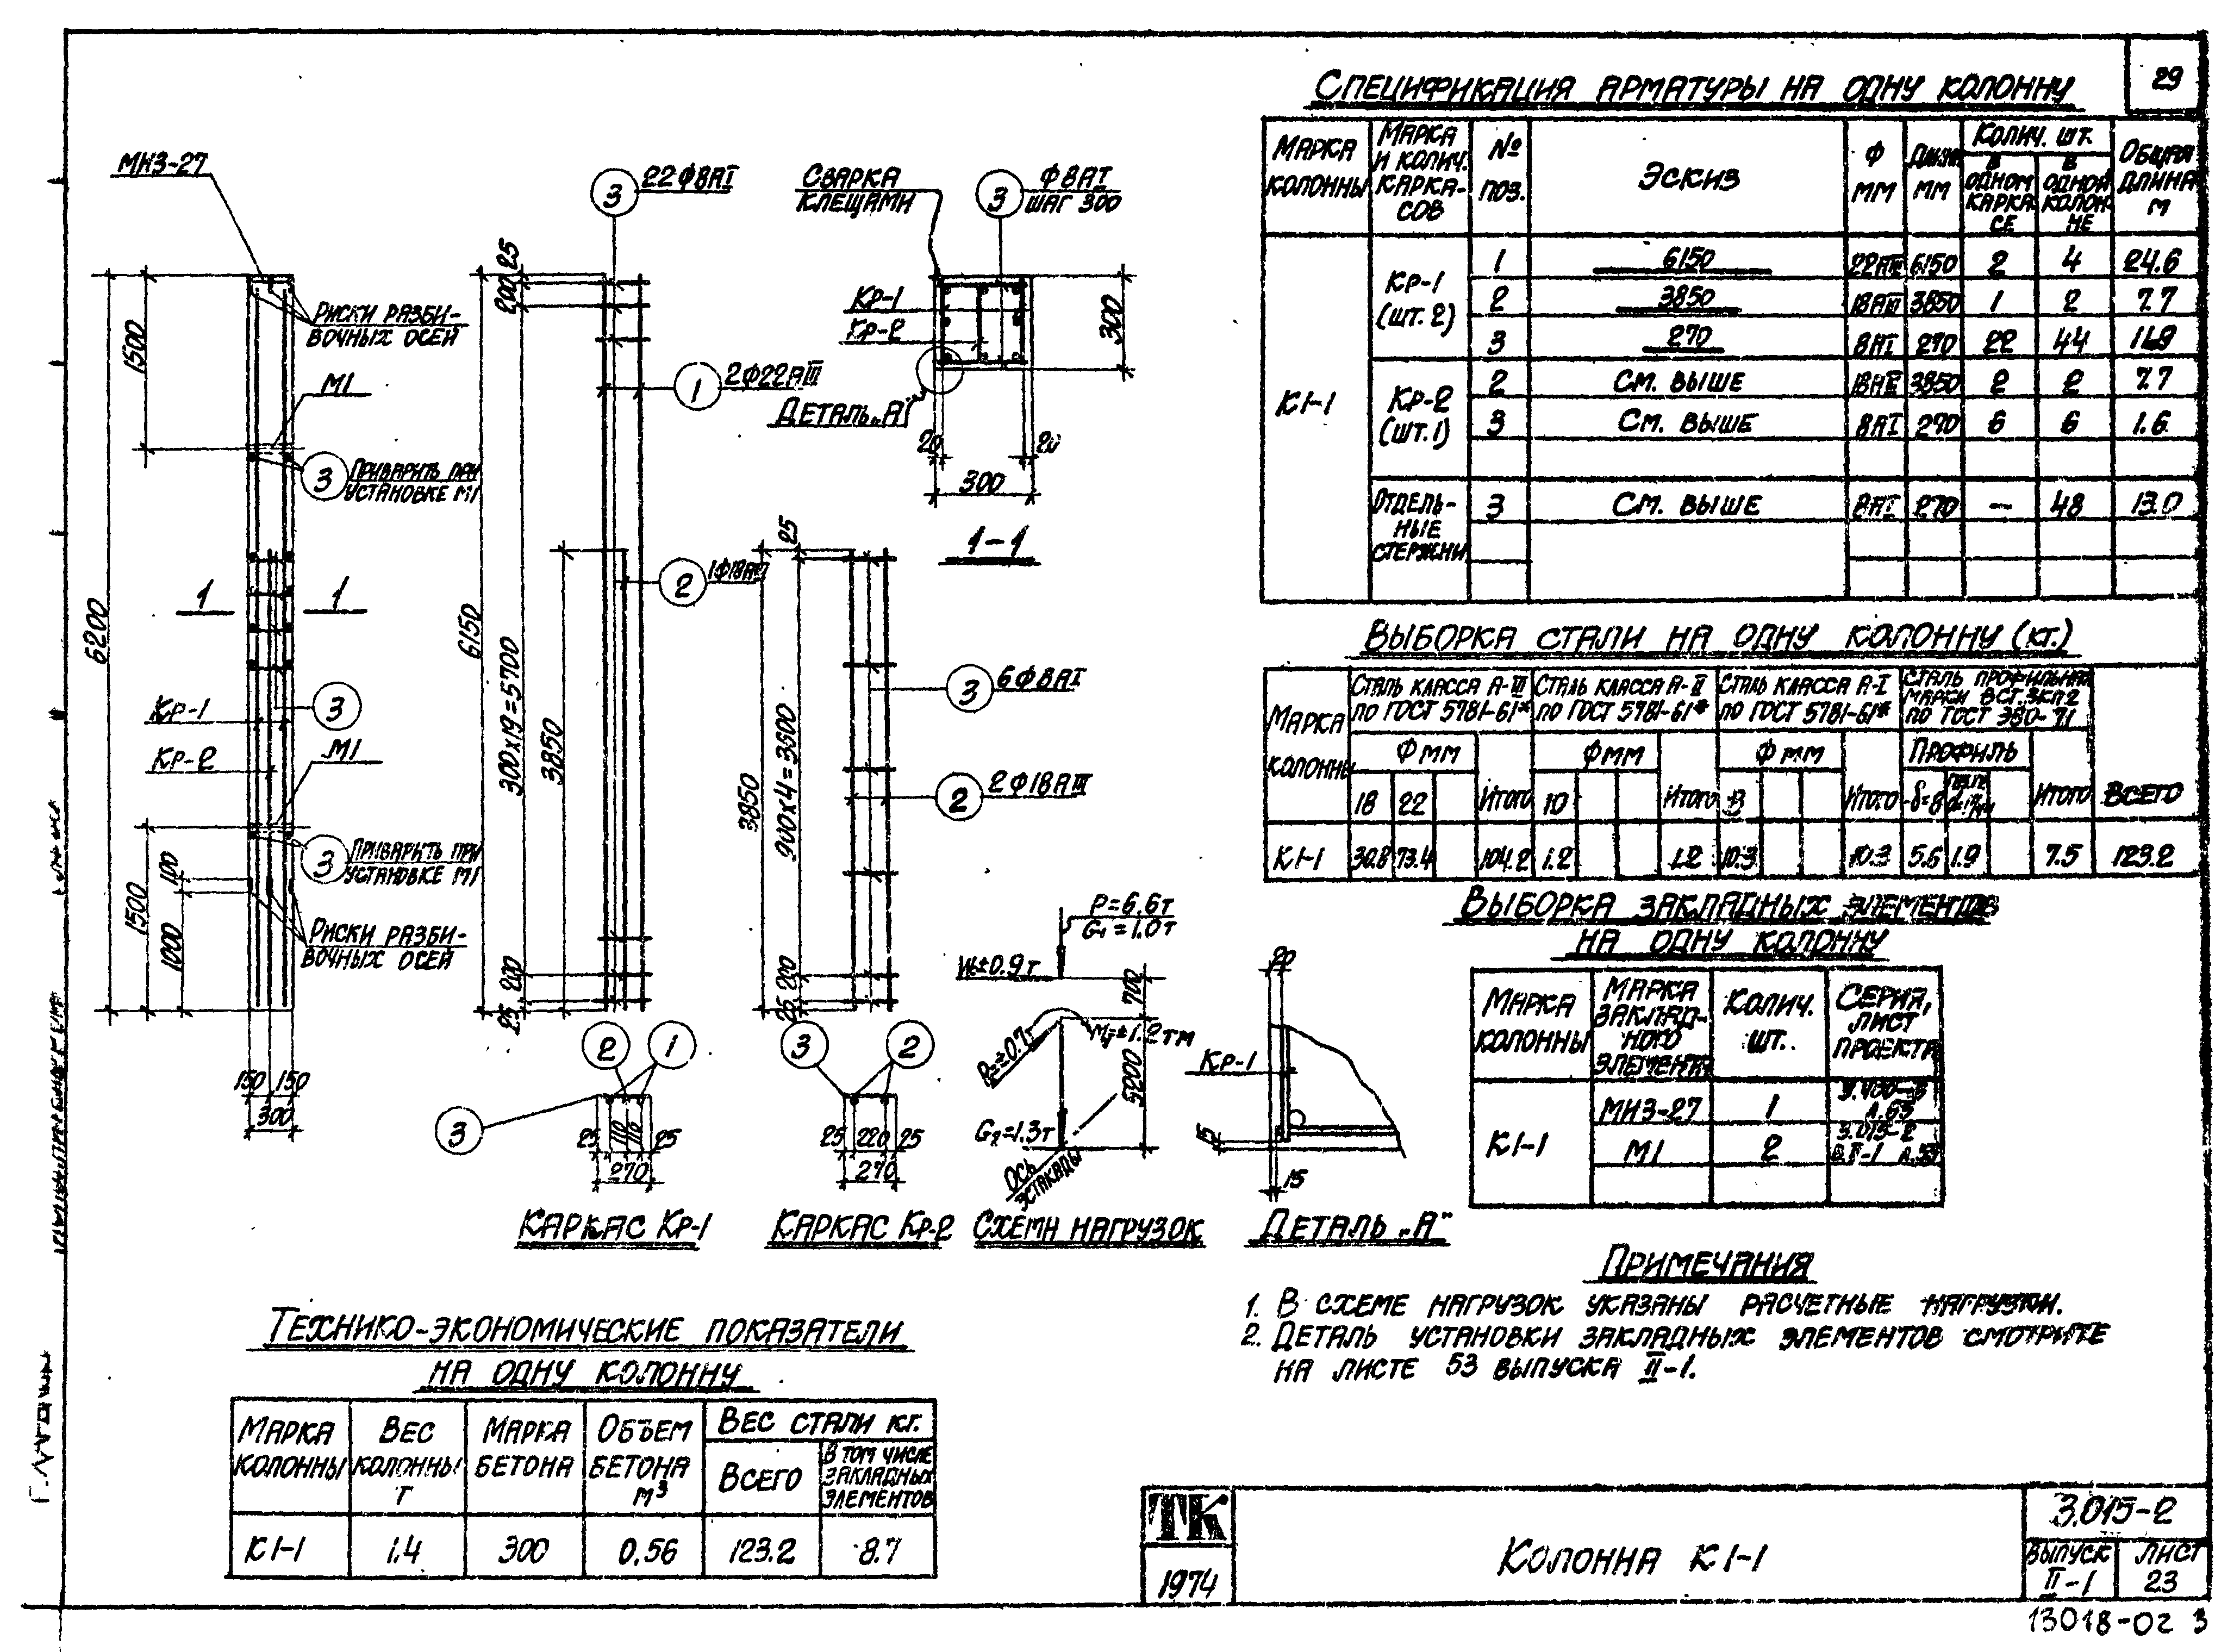 29
МН3-27
Риски разби-
вочных осей
М1
3
Приварить при
установке М1
1500
6200
1
1
Кр-1
Кр-2
3
М1
3
Приварить при
установке М1
Риски разби-
вочных осей
1500
100
1000
150
150
300
3
22Ф8АI
25
200
6150
300х19=5700
3850
200
25
1
2Ф22АIII
2
1Ф18АIII
2
1
3
25
110
110
25
270
Каркас Кр-1
25
3850
900х4=3600
200
25
3
6Ф8АI
2
2Ф18АIII
3
2
25
220
25
270
Каркас Кр-2
Сварка
клещами
3
Ф8АI
шаг 300
Кр-1
Кр-2
Деталь „А"
300
20
20
300
1-1
P=6.6т
G₁=1.0т
W=±0.9т
700
M₁=±1.2тм
P₂=±0.7т
5200
G₂=1.3т
Ось
эстакады
Схема нагрузок
20
Кр-1
15
15
Деталь „А"
Спецификация арматуры на одну колонну
Марка колонны
Марка и колич. каркасов
№ поз.
Эскиз
Ф мм
Длина мм
Колич. шт.
в одном каркасе
в одной колонне
Общая длина м
К1-1
Кр-1 (шт. 2)
1 6150 22АIII 6150 2 4 24.6
2 3850 18АIII 3850 1 2 7.7
3 270 8АI 270 22 44 11.9
Кр-2 (шт. 1)
2 См. выше 18АIII 3850 2 2 7.7
3 См. выше 8АI 270 6 6 1.6
Отдельные стержни
3 См. выше 8АI 270 — 48 13.0
Выборка стали на одну колонну (кг.)
Марка колонны
Сталь класса А-III по ГОСТ 5781-61*
Сталь класса А-II по ГОСТ 5781-61*
Сталь класса А-I по ГОСТ 5781-61*
Сталь профильная марки ВСт.3кп2 по ГОСТ 380-71
Всего
Ф мм
Ф мм
Ф мм
Профиль
18 22 Итого 10 Итого 8 Итого δ=8 Итого
К1-1 30.8 73.4 104.2 1.2 1.2 10.3 10.3 5.6 1.9 7.5 123.2
Выборка закладных элементов
на одну колонну
Марка колонны
Марка закладного элемента
Колич. шт.
Серия, лист проекта
К1-1
МН3-27 1
М1 2 3.015-2
Примечания
1. В схеме нагрузок указаны расчетные нагрузки.
2. Деталь установки закладных элементов смотрите
на листе 53 выпуска II-1.
Технико-экономические показатели
на одну колонну
Марка колонны
Вес колонны т
Марка бетона
Объем бетона м³
Вес стали кг.
Всего
В том числе закладных элементов
К1-1 1.4 300 0.56 123.2 8.7
ТК
1974
Колонна К1-1
3.015-2
Выпуск II-1
Лист 23
13018-02 3